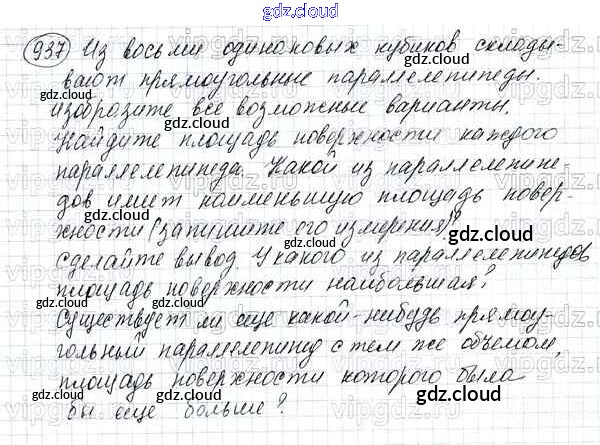 gdz.cloud
937 Из восьми одинаковых кубиков склады-
вают прямоугольные параллелепипеды.
Изобразите все возможные варианты.
Найдите площадь поверхности каждого
параллелепипеда. Какой из параллелепипе-
дов имеет наименьшую площадь повер-
хности (запишите его измерения)?
Сделайте вывод. У какого из параллелепипедов
площадь поверхности наибольшая?
Существует ли еще какой-нибудь прямоу-
гольный параллелепипед с тем же объемом,
площадь поверхности которого была
бы еще больше?